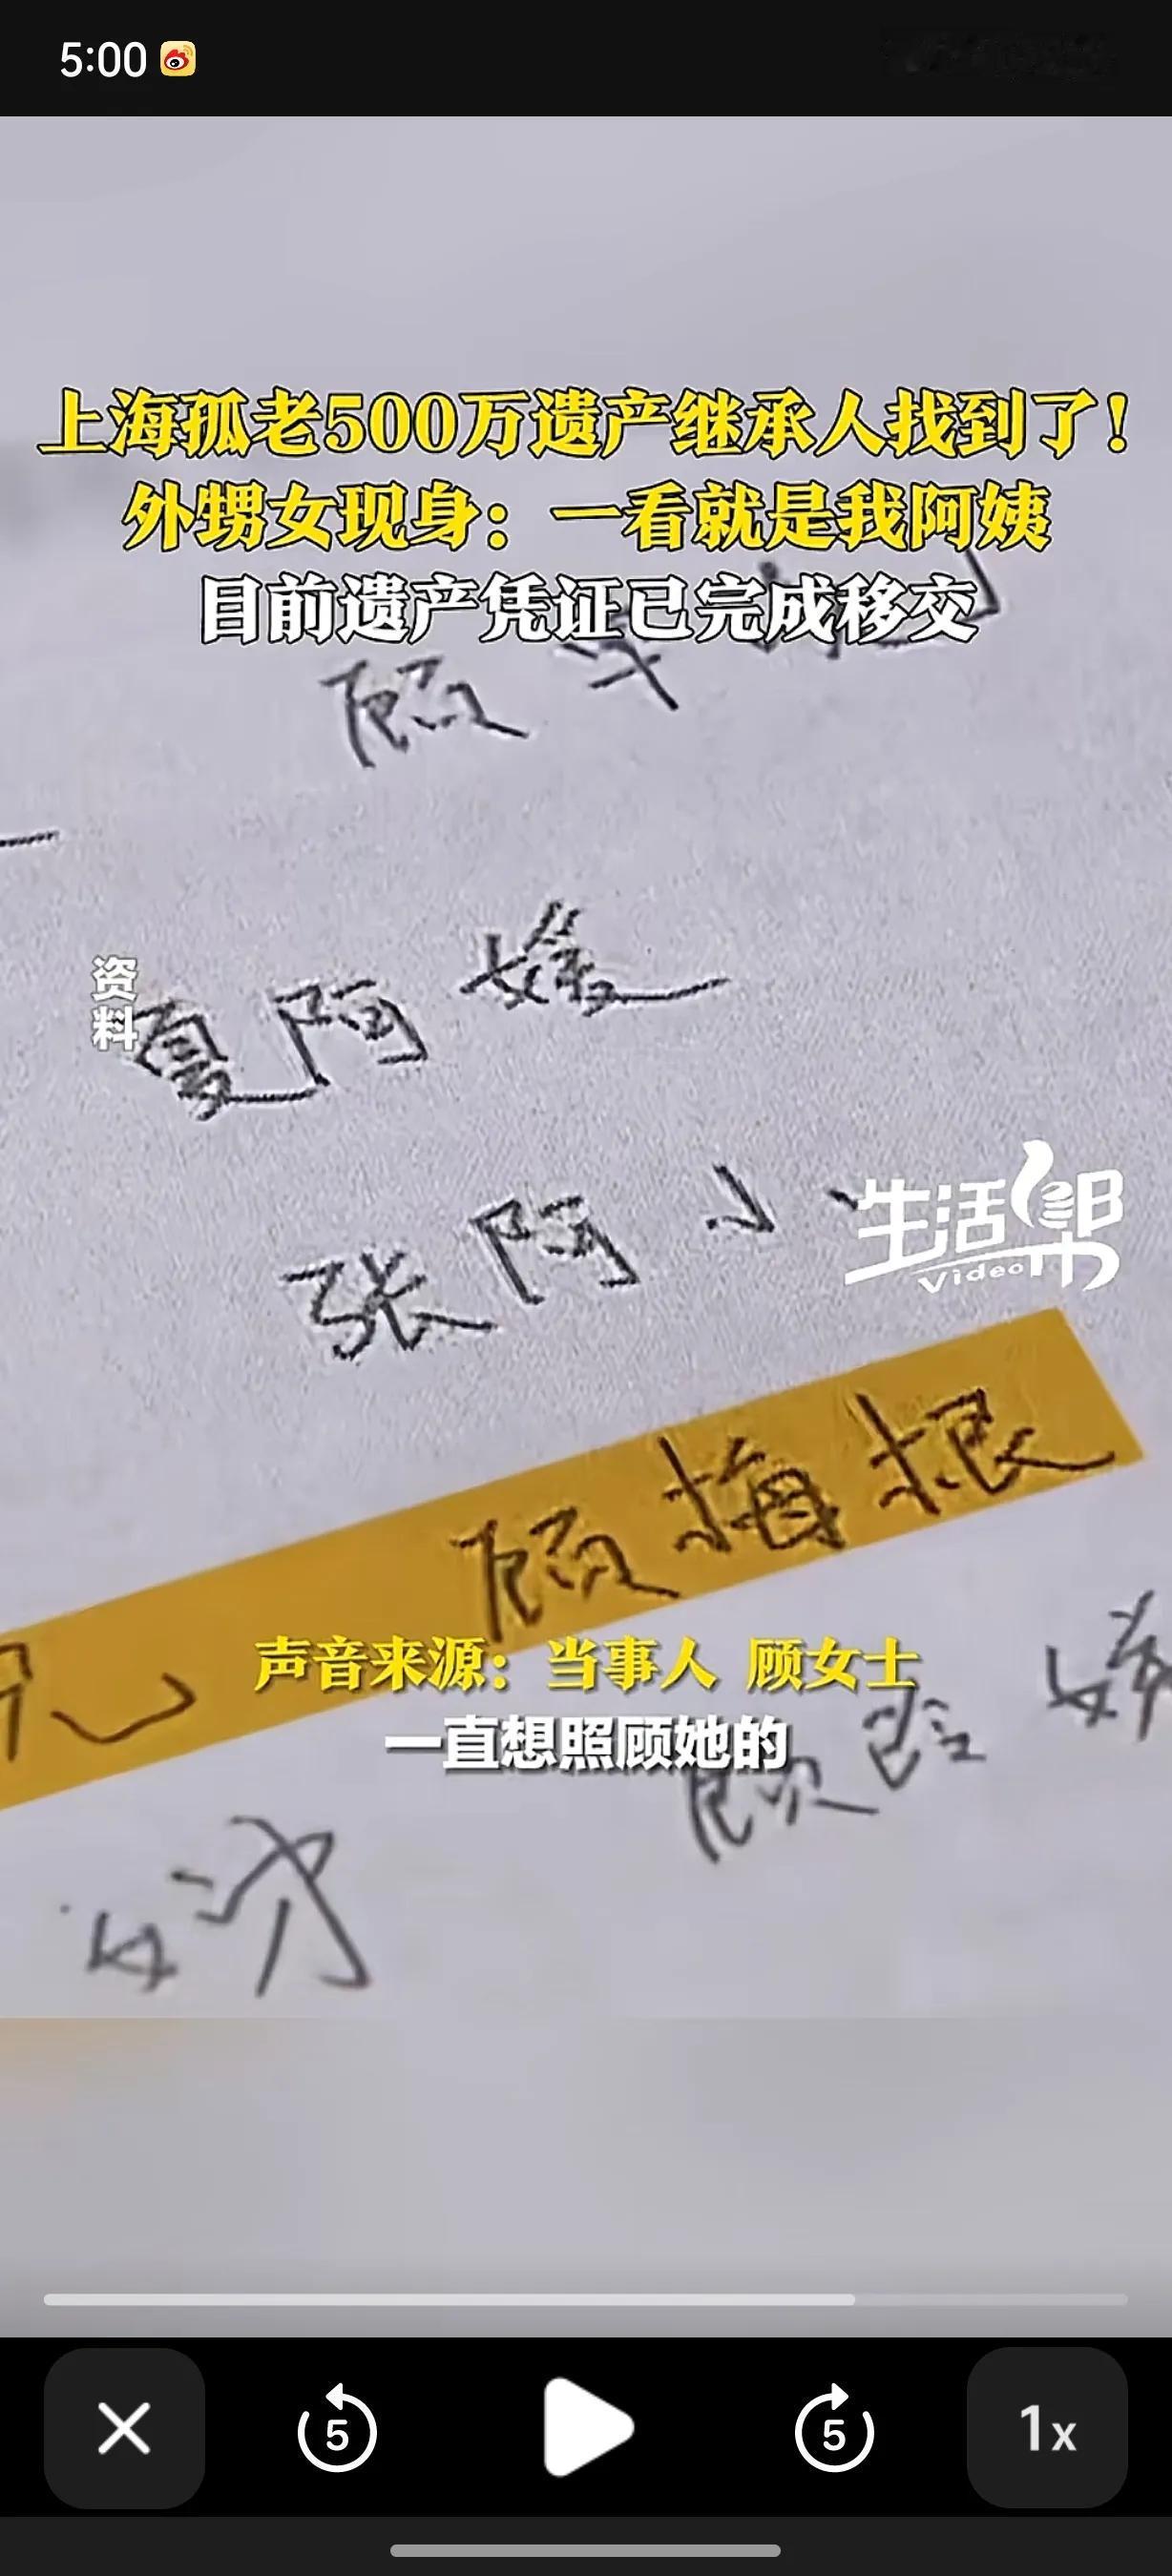 5:00
上海孤老500万遗产继承人找到了!
外甥女现身：一看就是我阿姨
目前遗产凭证已完成移交
顾
资料
夏阿
张阿小
生活帮
Video
顾梅根
声音来源：当事人 顾女士
一直想照顾她的
顾
5
5
1x